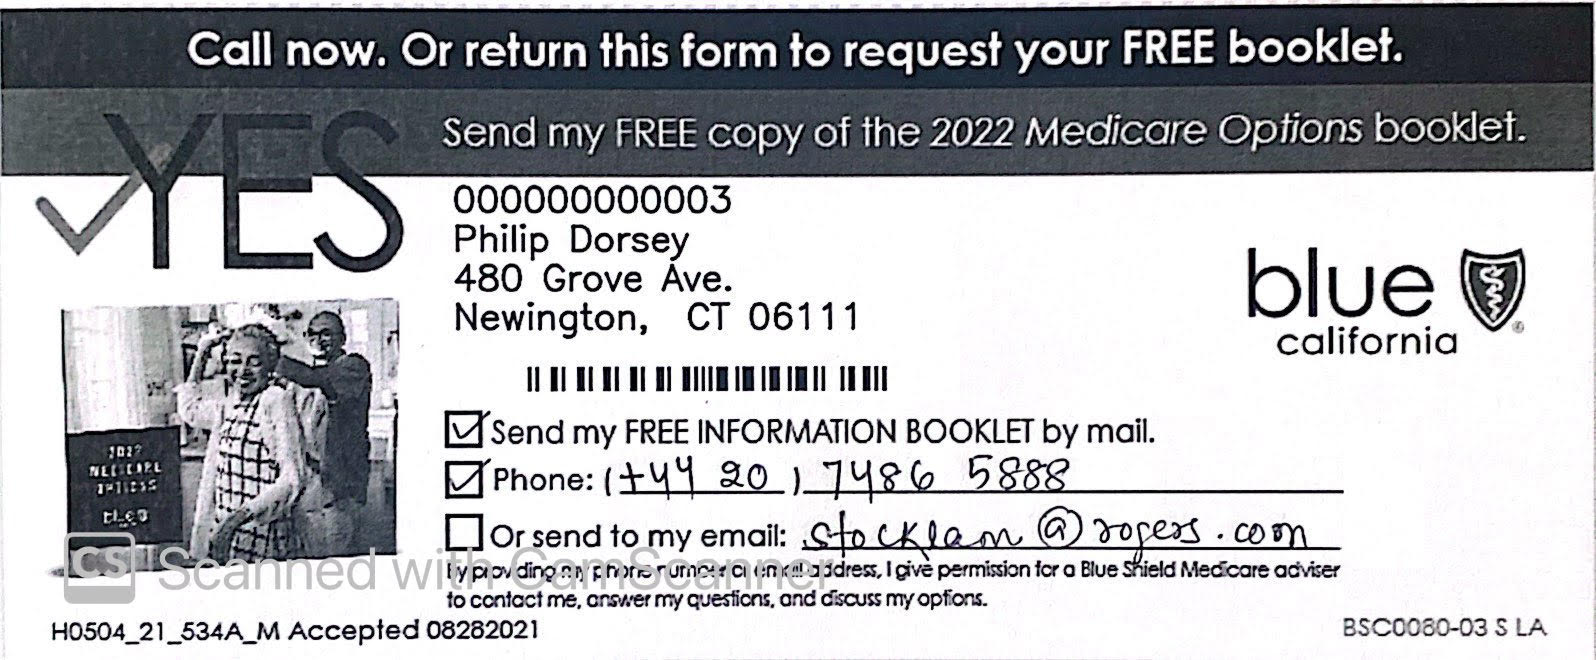 Call now. Or return this form to request your FREE booklet.
YES
Send my FREE copy of the 2022 Medicare Options booklet.
000000000003
Philip Dorsey
480 Grove Ave.
Newington, CT 06111
blue
california
2022
MEDICARE
OPTIONS
Send my FREE INFORMATION BOOKLET by mail.
Phone: (+44 20) 7486 5888
Or send to my email: stocklam@rogers.com
CS Scanned with CamScanner
By providing my phone number or email address, I give permission for a Blue Shield Medicare adviser
to contact me, answer my questions, and discuss my options.
H0504_21_534A_M Accepted 08282021
BSC0080-03 S LA